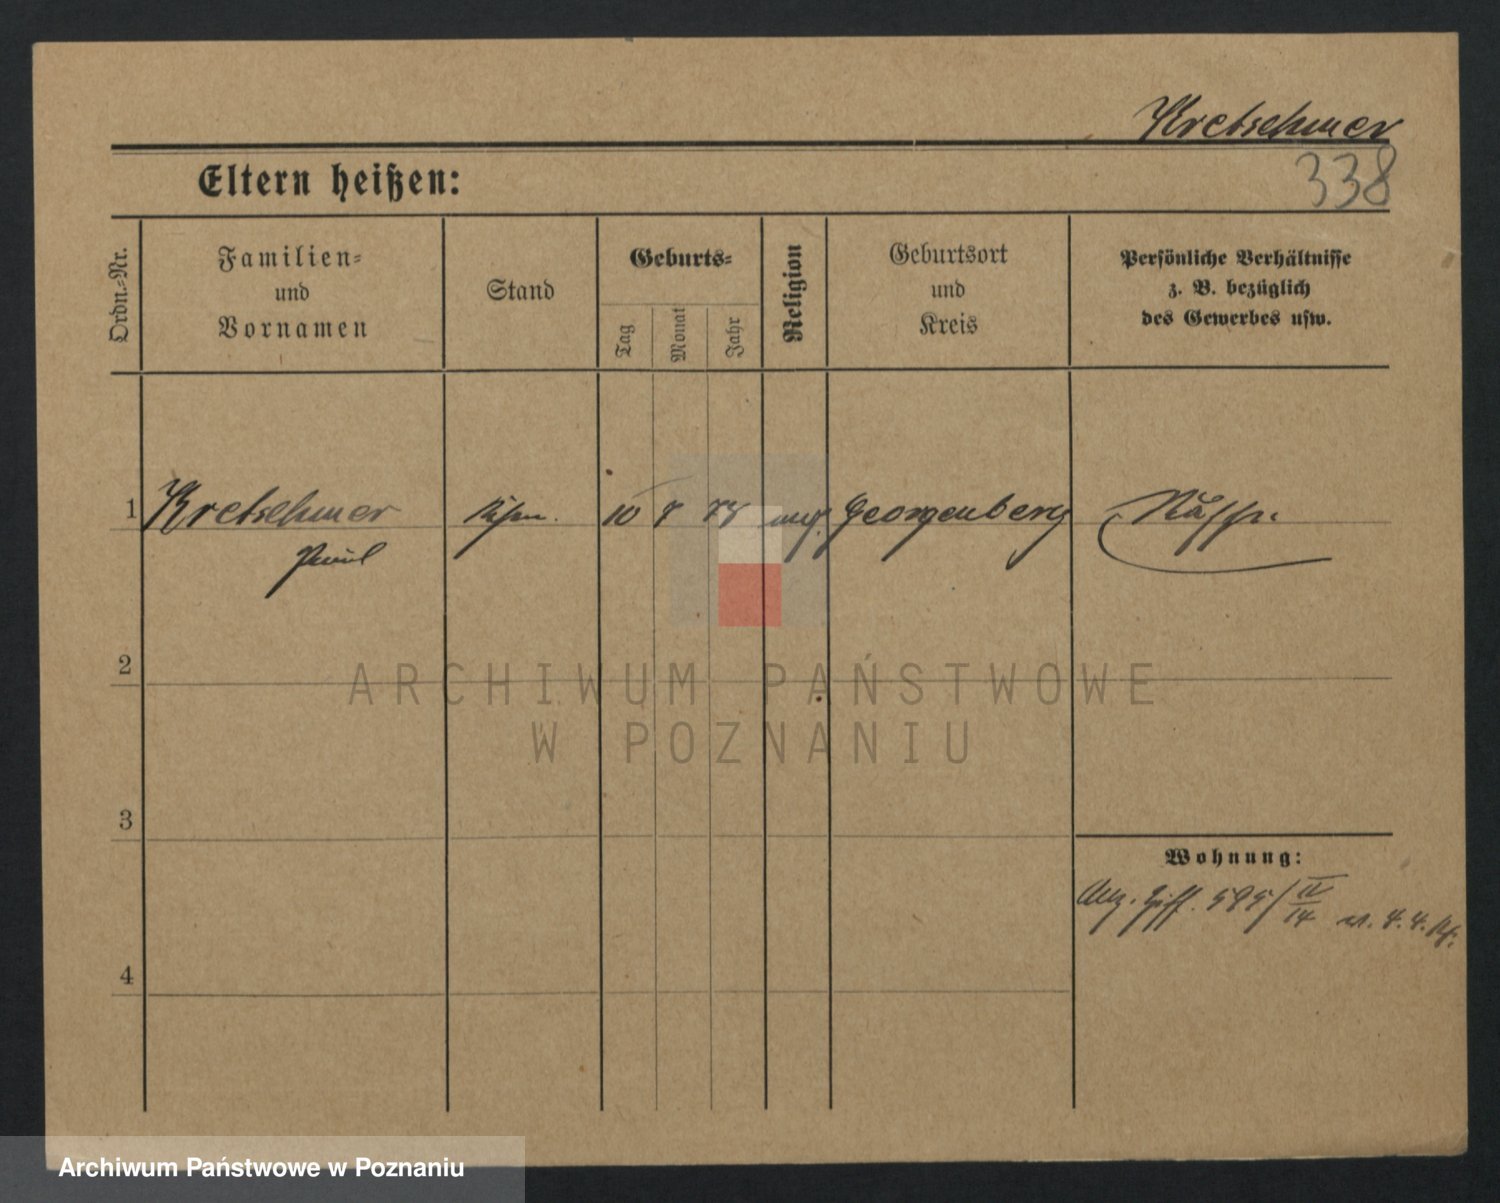 Kretschmer
338
Eltern heißen:
Ordn.-Nr.
Familien-
und
Vornamen
Stand
Geburts-
Tag
Monat
Jahr
Religion
Geburtsort
und
Kreis
Persönliche Verhältnisse
z. B. bezüglich
des Gewerbes usw.
1 Kretschmer 10 Georgenberg
Paul
2
3
4
Wohnung:
ARCHIWUM PAŃSTWOWE
W POZNANIU
Archiwum Państwowe w Poznaniu